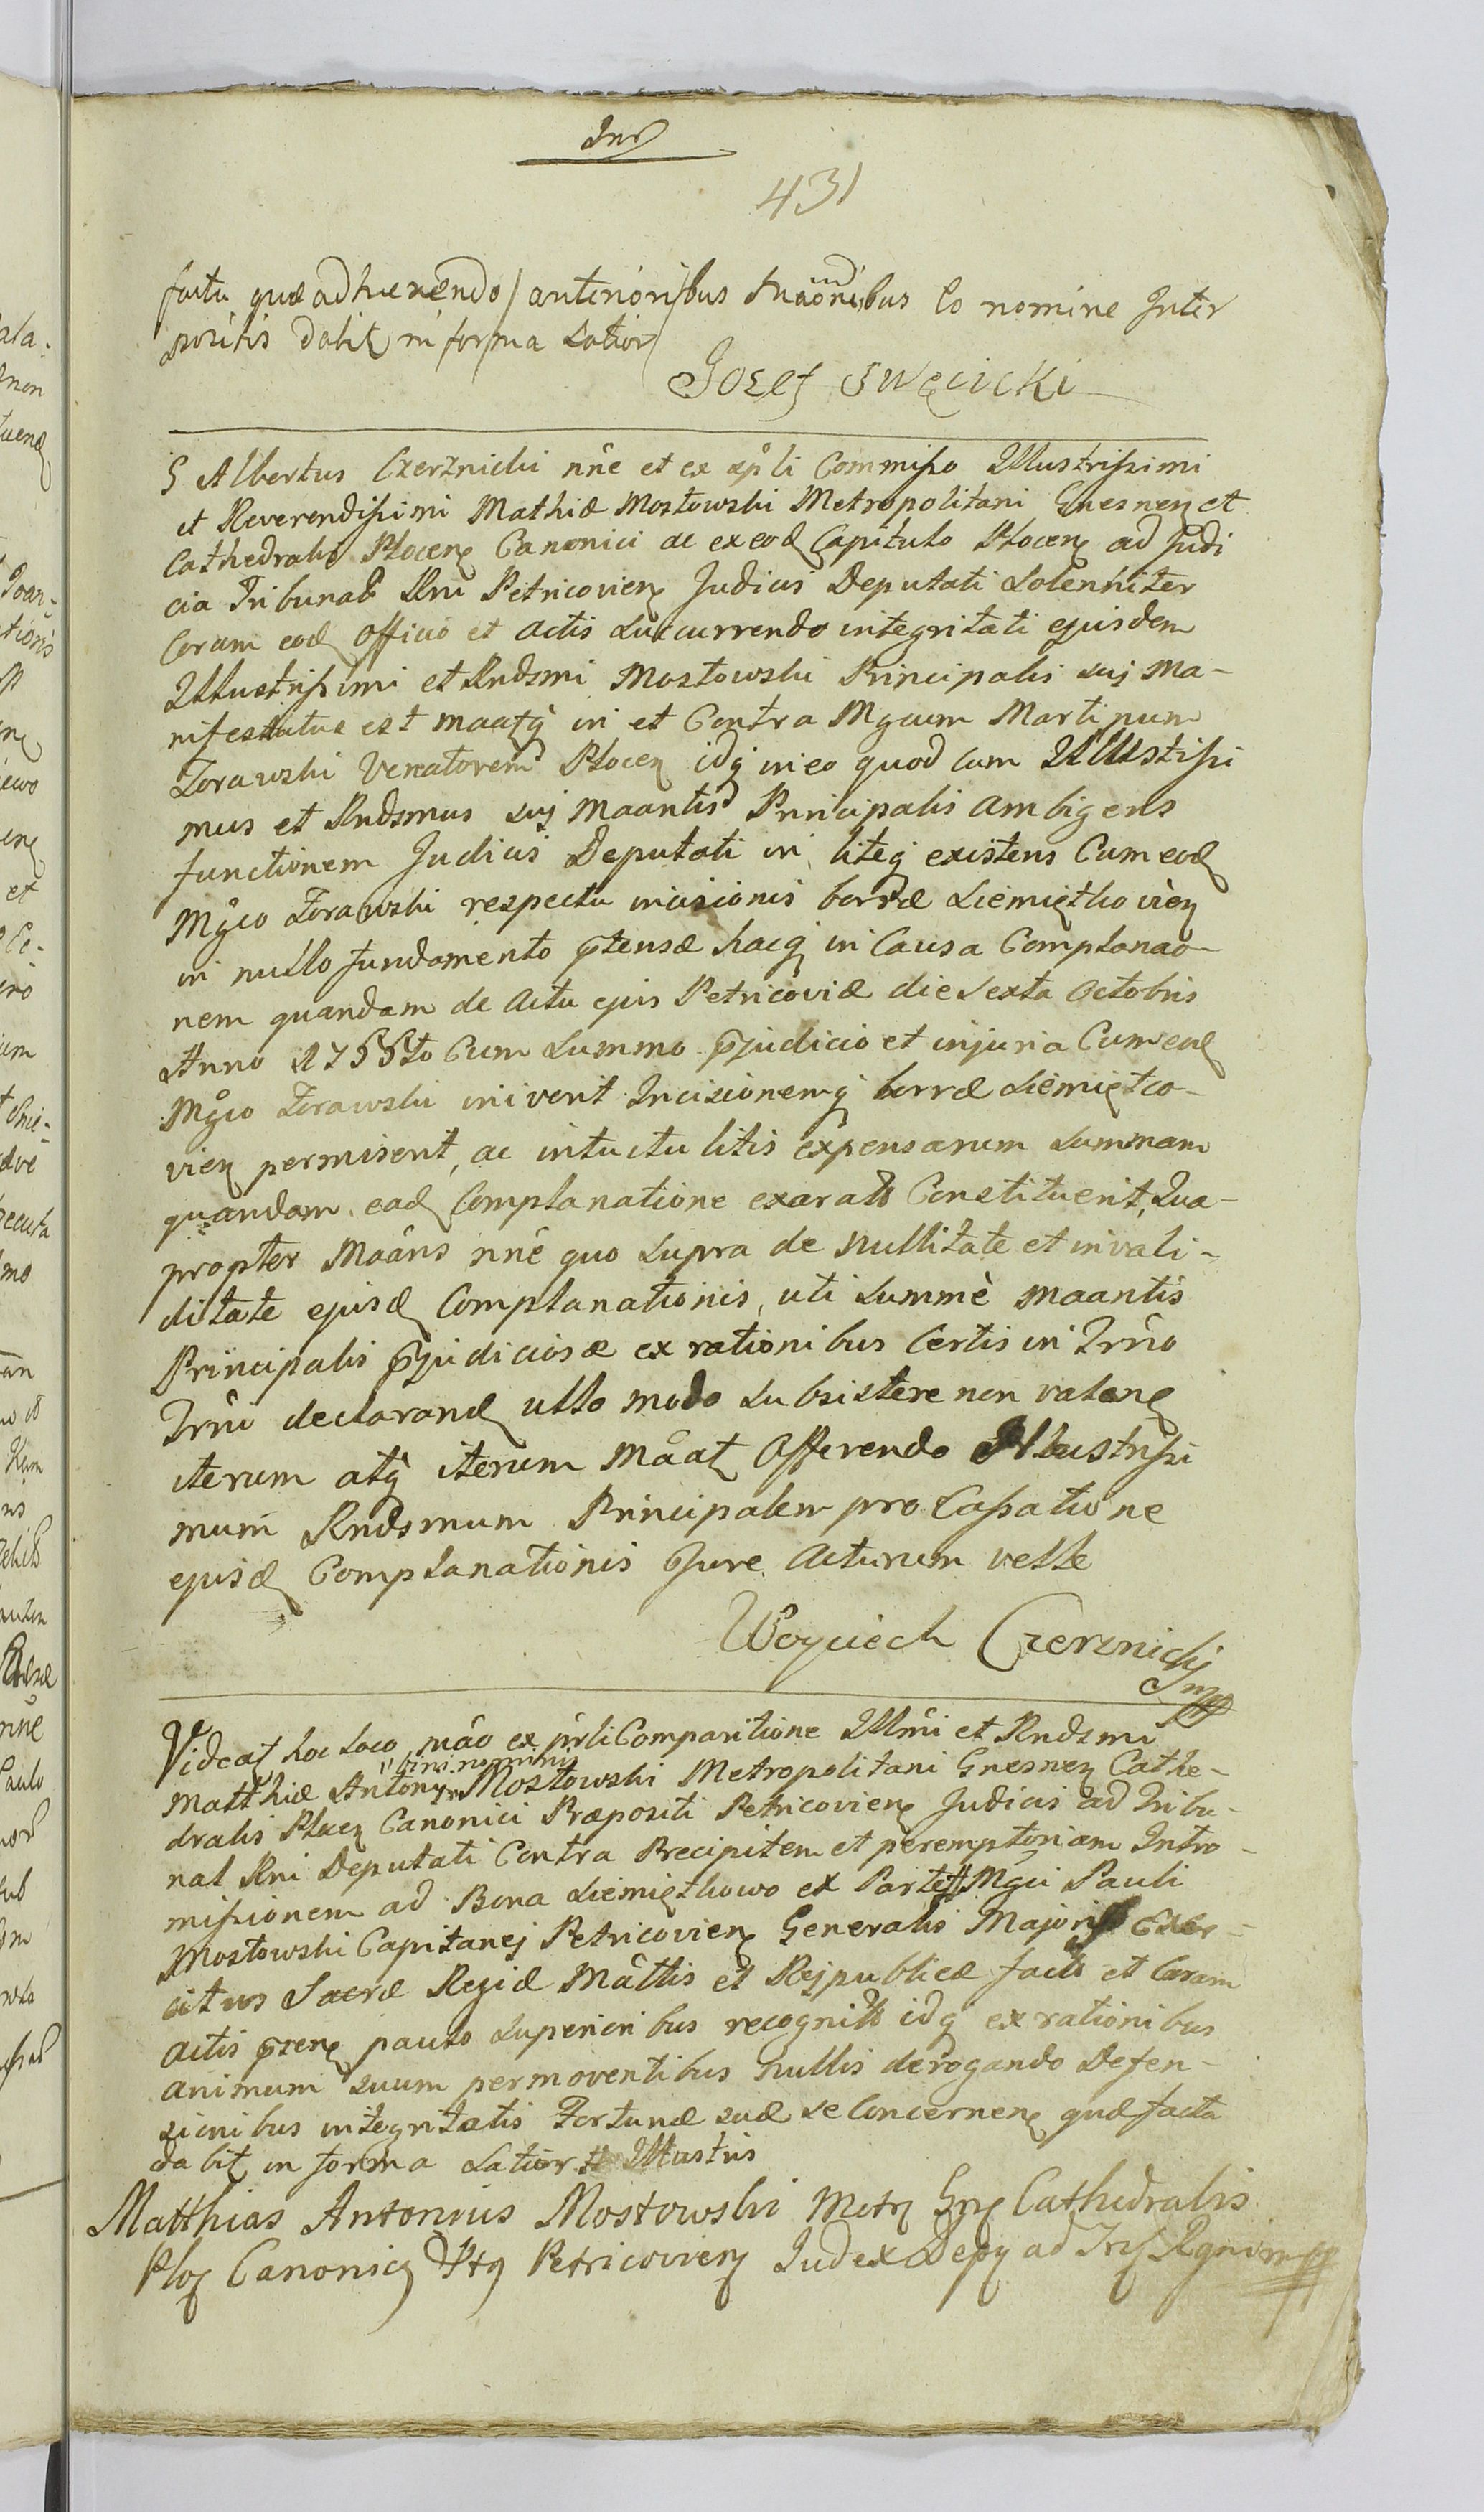 431
facta quæ adhærendo anterioribus Maõnibus eo nomine Inter
positis dabit in forma Latior
Jozef Swęcicki
G Albertus Czerznicki nñe et ex spli Commisso Illustrissimi
et Reverendissimi Mathiæ Mostowski Metropolitani Gnesnen et
Cathedralis Plocen Canonici ac ex eod Capitulo Plocen ad Judi
cia Tribunal Rni Petricovien Judicis Deputati Solenniter
Coram eod Officio et Actis Succurrendo integritati ejusdem
Illustrissimi et Rndsmi Mostowski Principalis sui Ma-
nifestatus est maatq in et Contra Mgcum Martinum
Zorawski Venatorem Plocen idq in eo quod cum Illustrissi
mus et Rndsmus suj Maantis Principalis ambigens
functionem Judicis Deputati in liteq existens Cum eod
Mgco Zorawski respectu incisionis borræ Siemiętkovien
in nullo fundamento ptensæ hacq in Causa Complanao
nem quandam de Actu ejus Petricoviæ die Sexta Octobris
Anno 1755to Cum Summo pjudicio et injuria Cum eod
Mgco Zorawski iniverit Incisionemq borræ Siemiętco-
vien permiserit, ac intuitu litis expensarum Summam
quandam ead Complanatione exarat Constituerit, Qua-
propter Maans nñe quo Supra de Nullitate et invali-
ditate ejusd Complanationis, uti Summè maantis
Principalis pjudiciosæ ex rationibus Certis in Trño
Trñi declarand ullo modo Subsistere non valen
iterum atq iterum Maat Offerendo Illustrissi
mum Rndsmum Principalem pro Cassatione
ejusd Complanationis Jure Acturum velle
Woyciech Czerznicki
mpp
Videat hoc loco mão ex pñli Comparitione Illmi et Rndsmi
bini nominis
Matthiæ Antony Mostowski Metropolitani Gnesnen Cathe-
dralis Plocen Canonici Præpositi Petricovien Judicis ad Tribu-
nal Rni Deputati Contra Precipitem et peremptoriam Intro-
missionem ad Bona Siemiętkowo ex Parte Mgci Pauli
Mostowski Capitanej Petricovien Generalis Majoris Exer-
citus Sacræ Regiæ Mâttis et Reipublicæ facto et Coram
Actis pzen paulo Superioribus recognit idq ex rationibus
animum suum permoventibus nullis derogando Defen-
sionibus integritatis Fortunæ suæ se Concernen quæ facta
dabit in forma Latior Illustris
Matthias Antonius Mostowski Metr Gn Cathedralis
Ploc Canonic Ptq Petricovien Judex Dep ad Tr Rgni mpp